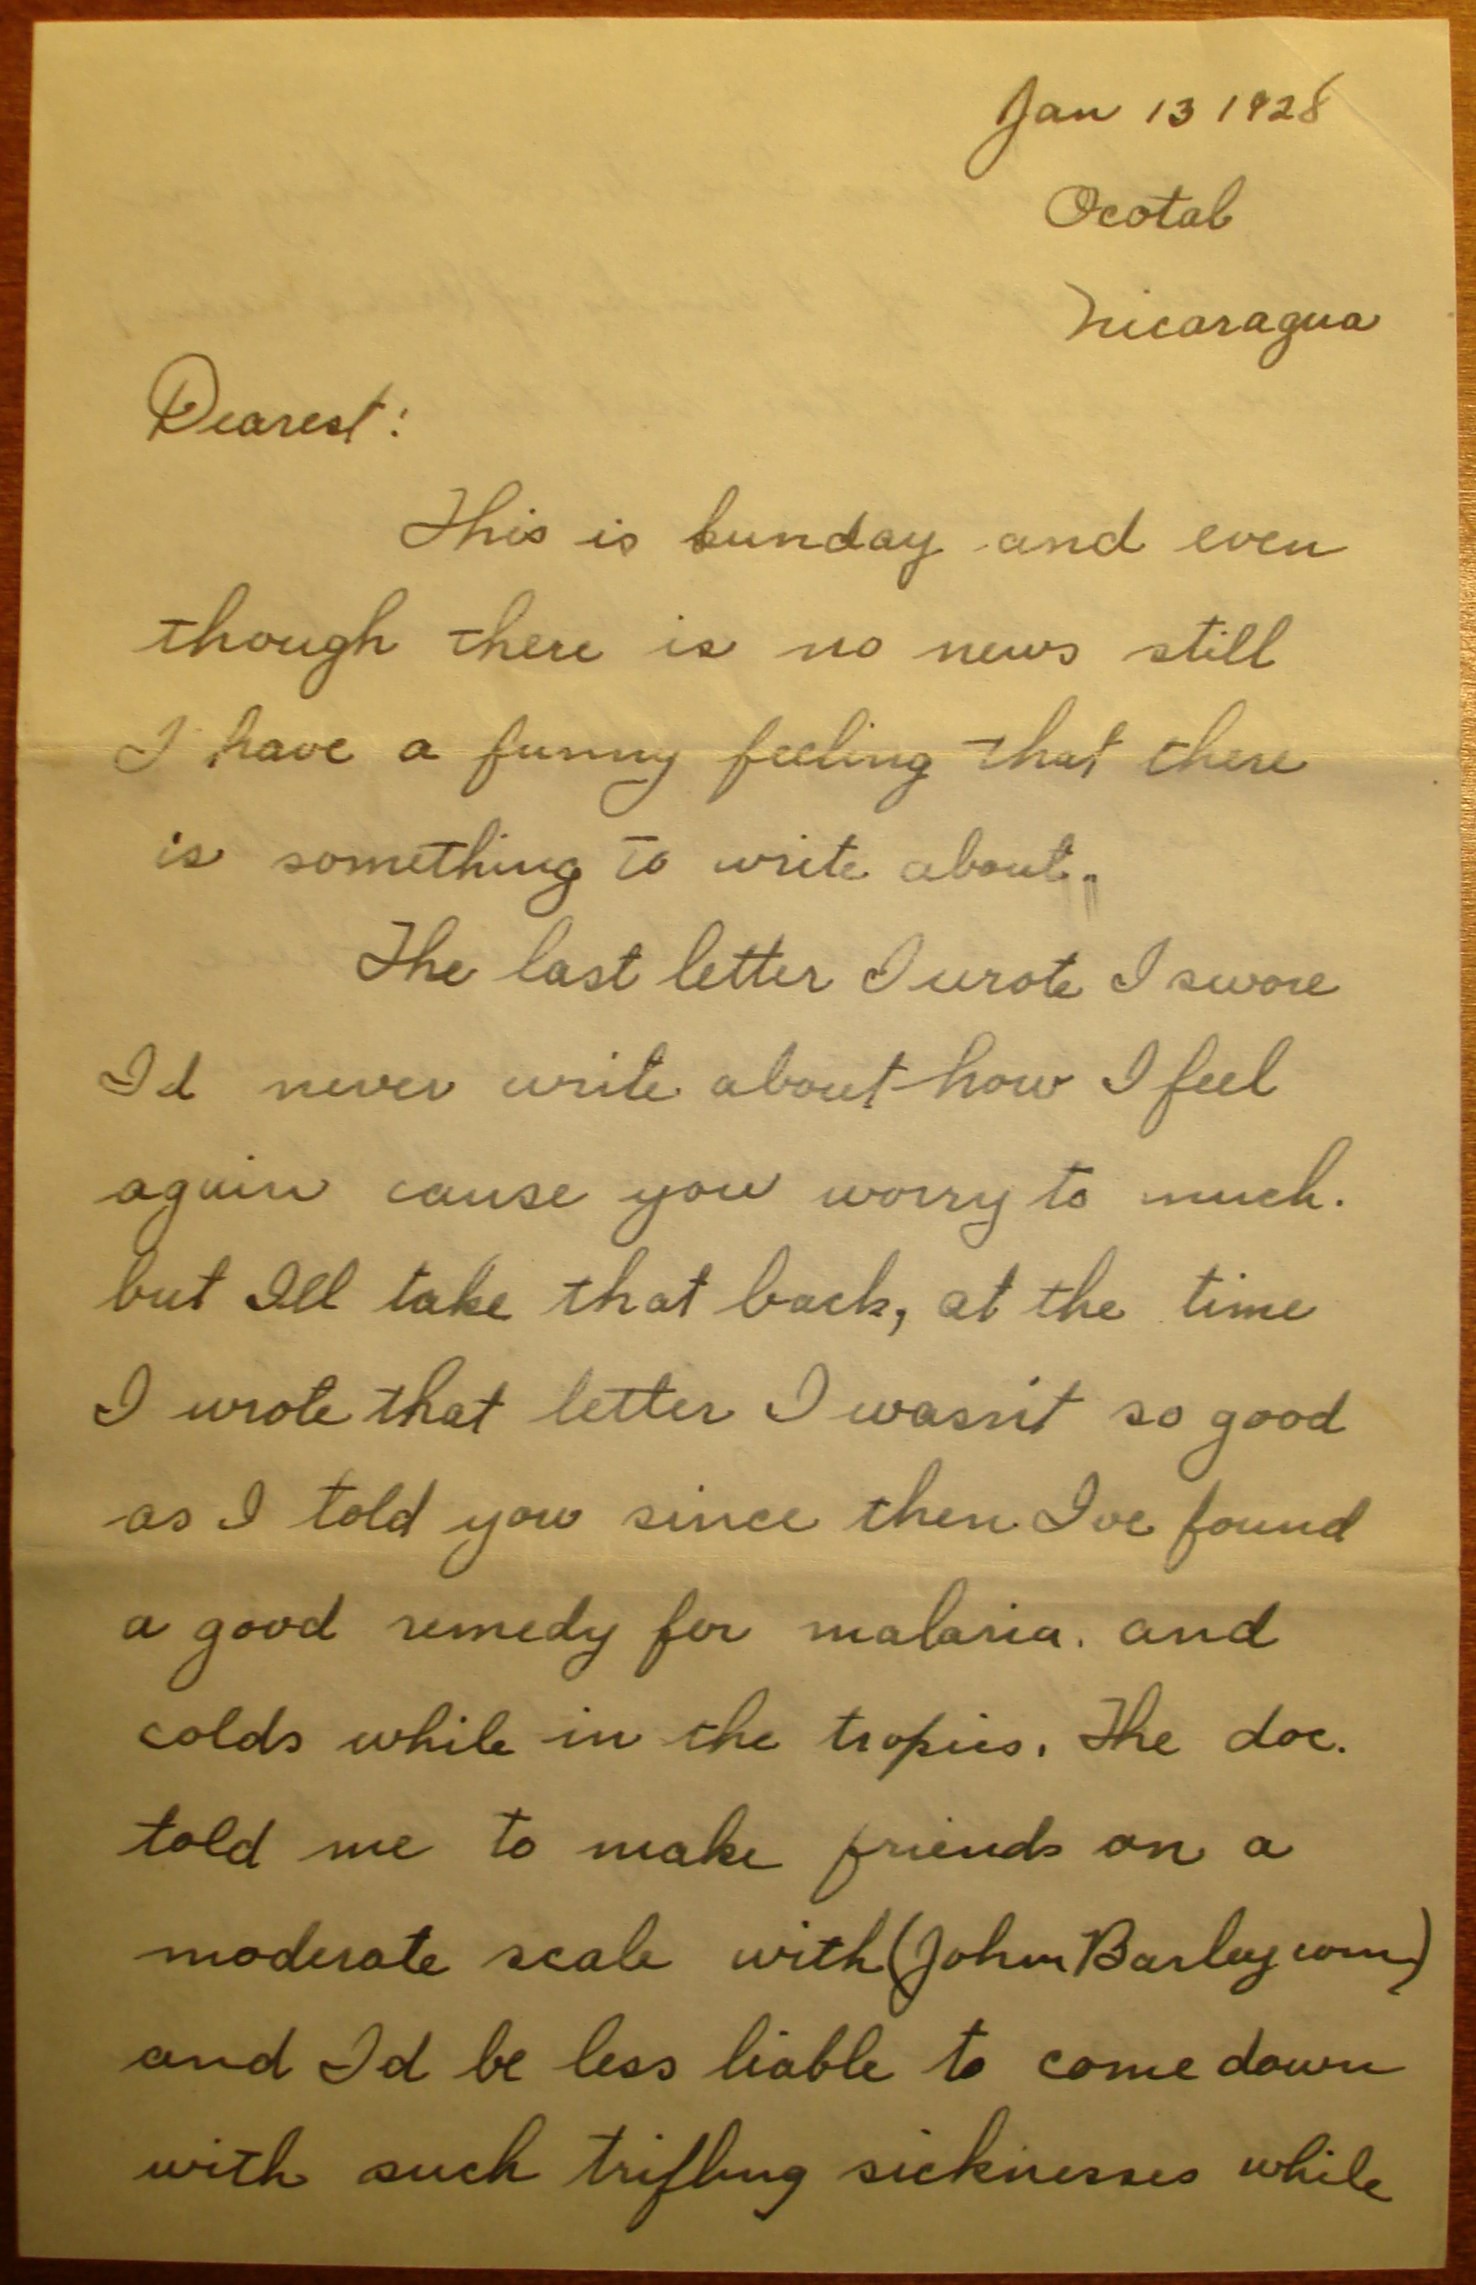 Jan 13 1928
Ocotal
Nicaragua
Dearest:
This is Sunday and even
though there is no news still
I have a funny feeling that there
is something to write about.
The last letter I wrote I swore
Id never write about how I feel
again cause you worry to much.
but Ill take that back, at the time
I wrote that letter I wasn't so good
as I told you since then Ive found
a good remedy for malaria. and
colds while in the tropics. The doc.
told me to make friends on a
moderate scale with (John Barleycorn)
and I'd be less liable to come down
with such trifling sicknesses while